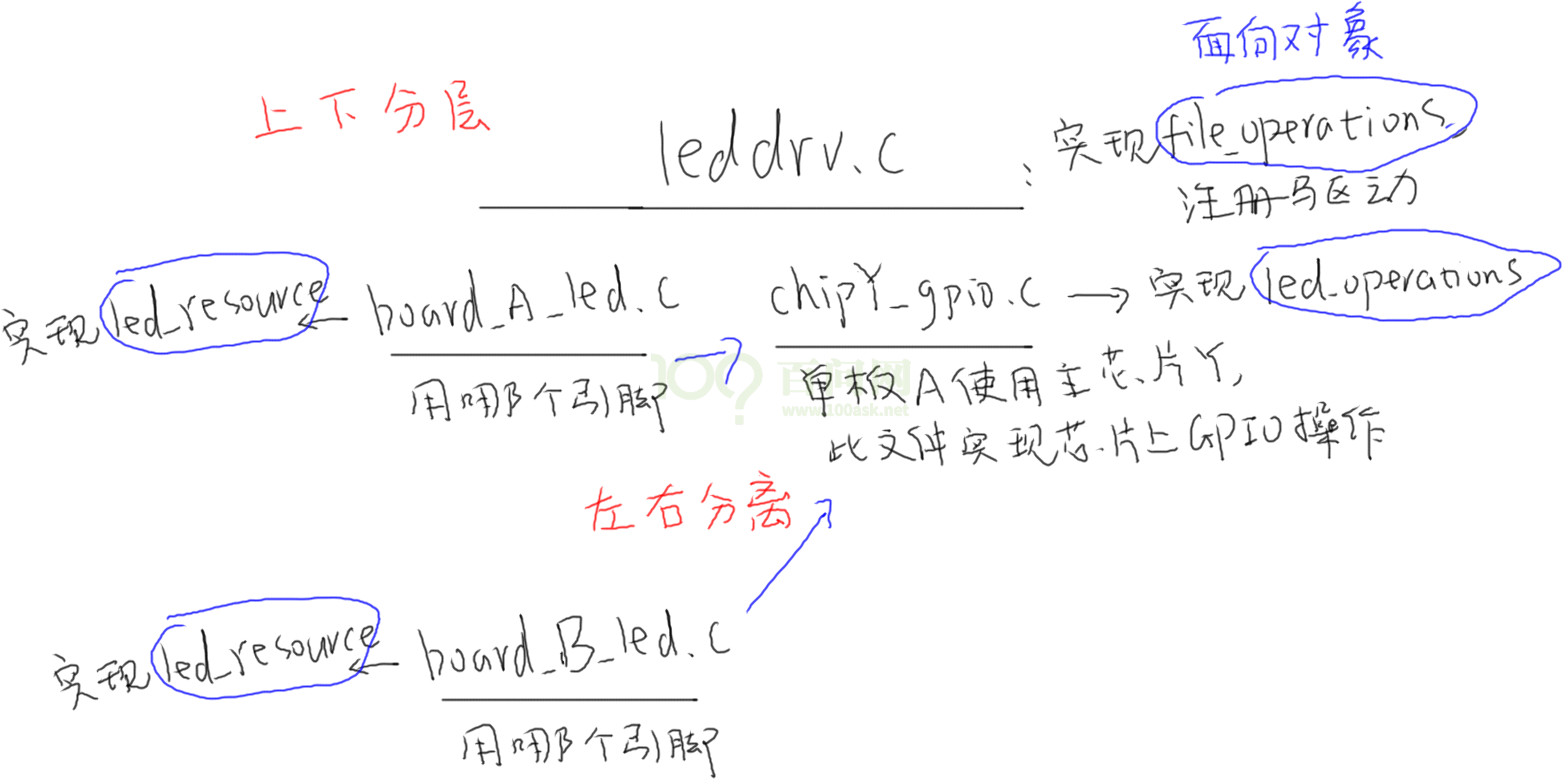 面向对象
上下分层
leddrv.c : 实现file_operations
注册驱动
实现led_resource ← board_A_led.c
chipY_gpio.c → 实现led_operations
用哪个引脚
单板A使用主芯片Y,
此文件实现芯片上GPIO操作
100ask
百问网
www.100ask.net
左右分离
实现led_resource ← board_B_led.c
用哪个引脚